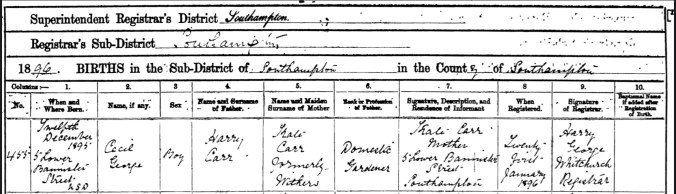 Superintendent Registrar's District Southampton
Registrar's Sub-District Southampton
1896. BIRTHS in the Sub-District of Southampton in the County of Southampton
Columns :— 1. 2. 3 4. 5. 6. 7. 8 9. 10.
No. When and Where Born. Name, if any. Sex Name and Surname of Father. Name and Maiden Surname of Mother Rank or Profession of Father. Signature, Description, and Residence of Informant When Registered. Signature of Registrar. Baptismal Name if added after Registration of Birth.
455 Twelfth December 1895 5 Lower Bannister Street U.S.D Cecil George Boy Harry Carr Kate Carr formerly Withers Domestic Gardener Kate Carr Mother 5 Lower Bannister Street Southampton Twenty first January 1896 Harry George Whitchurch Registrar